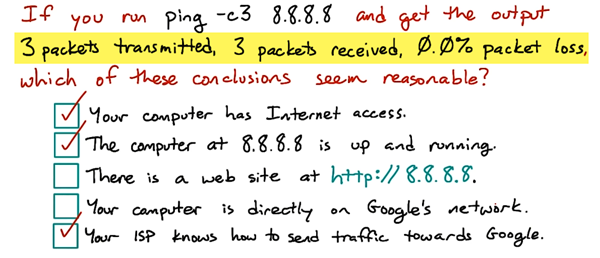 If you run ping -c3 8.8.8.8 and get the output
3 packets transmitted, 3 packets received, 0.0% packet loss,
which of these conclusions seem reasonable?
Your computer has Internet access.
The computer at 8.8.8.8 is up and running.
There is a web site at http://8.8.8.8.
Your computer is directly on Google's network.
Your ISP knows how to send traffic towards Google.